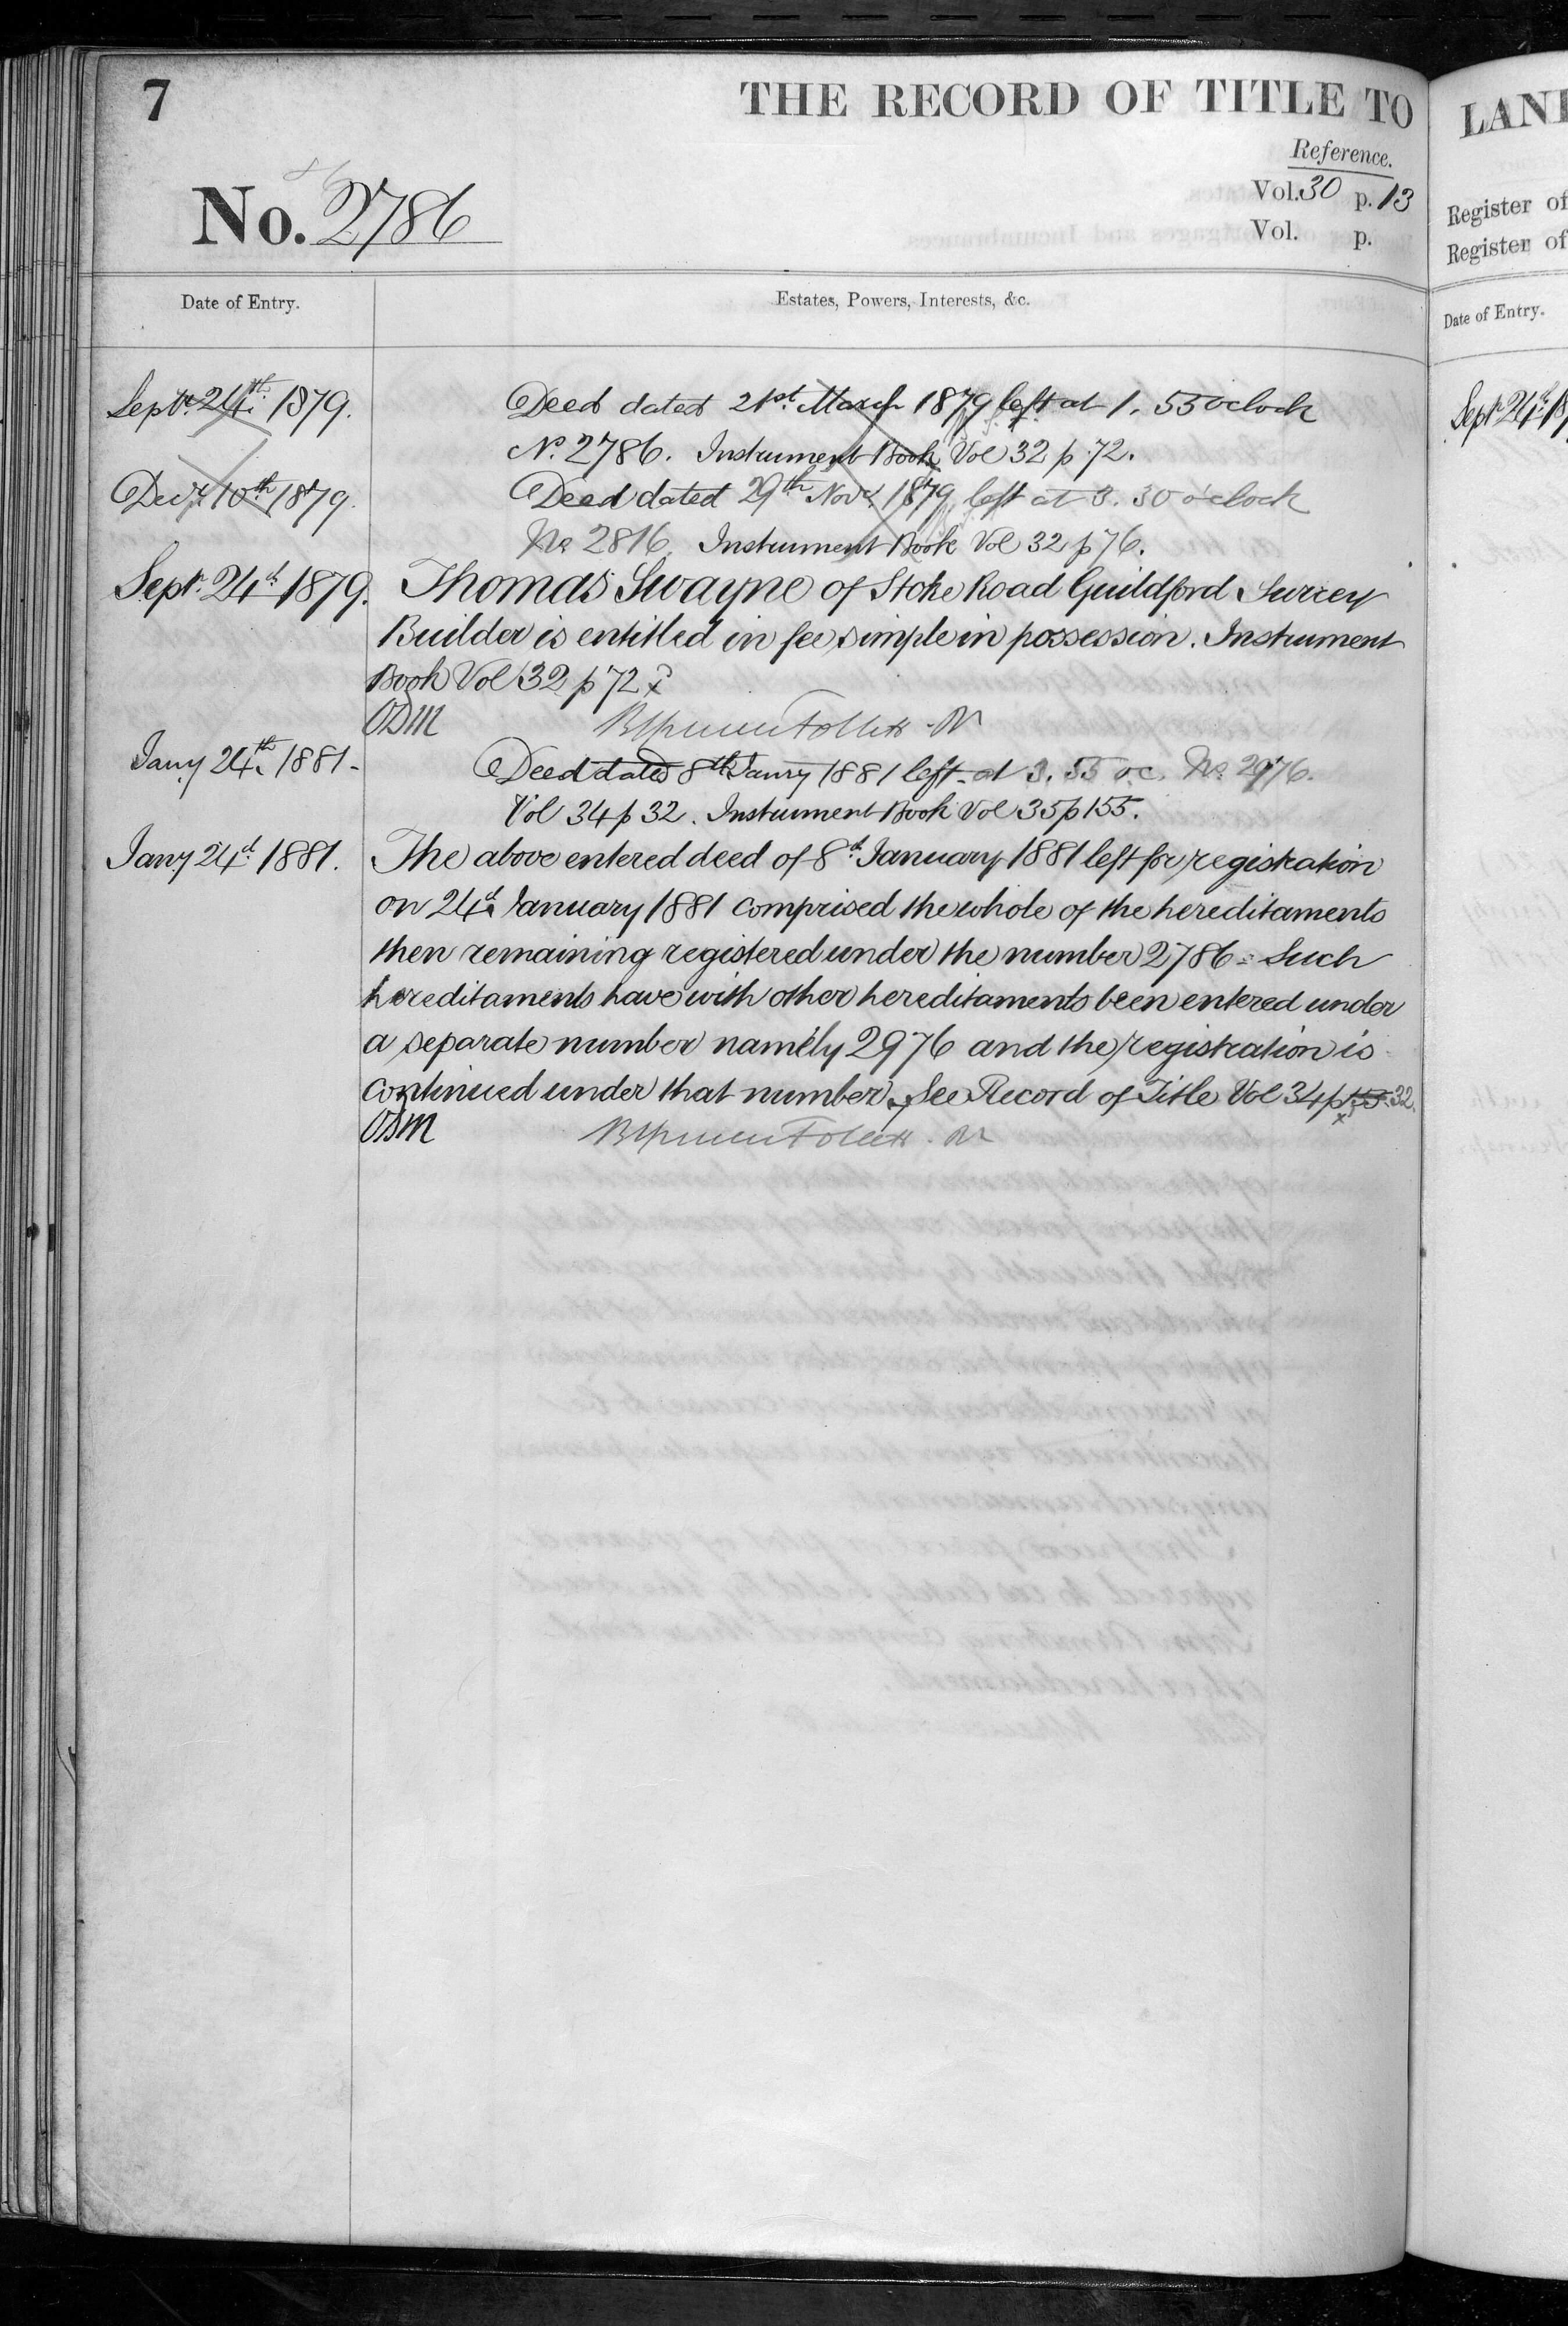 7
THE RECORD OF TITLE TO
Reference.
No. 2786
Vol. 30 p. 13
Vol. p.
Date of Entry.
Estates, Powers, Interests, &c.
Septr. 24th. 1879. Deed dated 21st. March 1879 left at 1. 55 o'clock
No. 2786. Instrument Book Vol 32 p 72.
Decr. 10th 1879. Deed dated 29th Novr. 1879, left at 3. 30 o'clock
No 2816. Instrument Book Vol 32 p 76.
Sept. 24th 1879. Thomas Swayne of Stoke Road Guildford Surrey
Builder is entitled in fee simple in possession. Instrument
Book Vol 32 p 72
Jany 24th. 1881- Deed dated 8th Janry 1881 left at 3. 55 o.c. No 2976.
Vol 34 p 32. Instrument Book Vol 35 p 155.
Jany 24th 1881. The above entered deed of 8th January 1881 left for registration
on 24th January 1881 comprised the whole of the hereditaments
then remaining registered under the number 2786 - Such
hereditaments have with other hereditaments been entered under
a separate number namely 2976 and the registration is
continued under that number. See Record of Title Vol 34 p 155. 32.
LAND
Register of
Register of
Date of Entry.
Sept. 24th